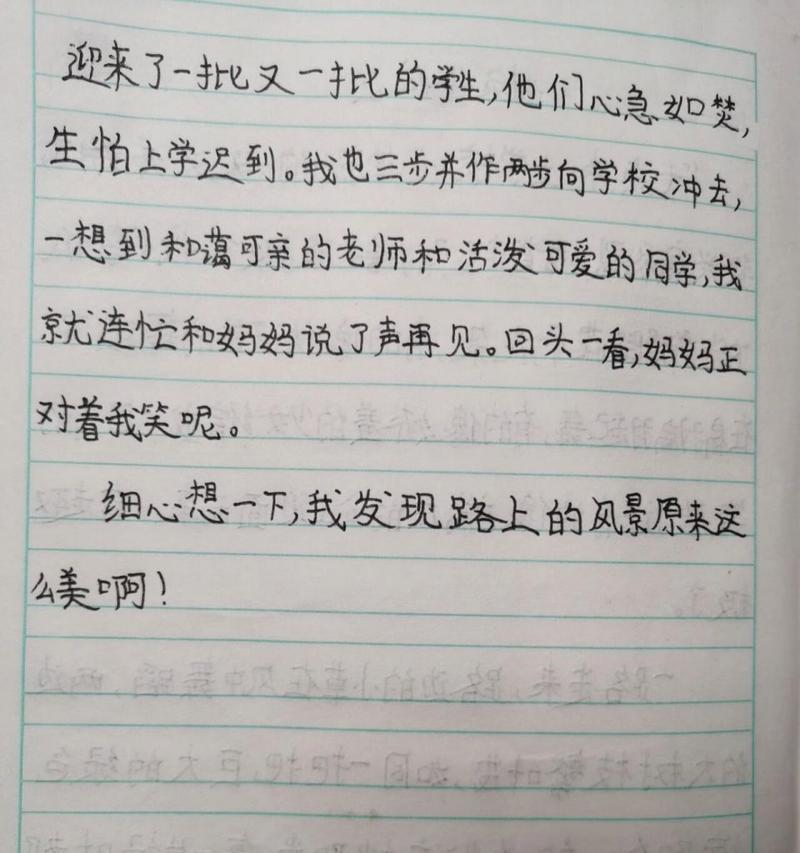 迎来了一批又一批的学生,他们心急如焚,
生怕上学迟到。我也三步并作两步向学校冲去,
一想到和蔼可亲的老师和活泼可爱的同学,我
就连忙和妈妈说了声再见。回头一看,妈妈正
对着我笑呢。
细心想一下,我发现路上的风景原来这
么美啊!